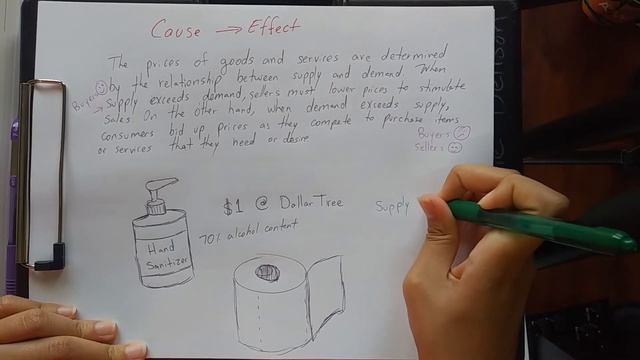 Cause → Effect
The prices of goods and services are determined
by the relationship between supply and demand. When
Buyers
supply exceeds demand, sellers must lower prices to stimulate
sales. On the other hand, when demand exceeds supply,
consumers bid up prices as they compete to purchase items
or services that they need or desire
Buyers
Sellers
$1 @ Dollar Tree
Supply
70% alcohol content
Hand
Sanitizer